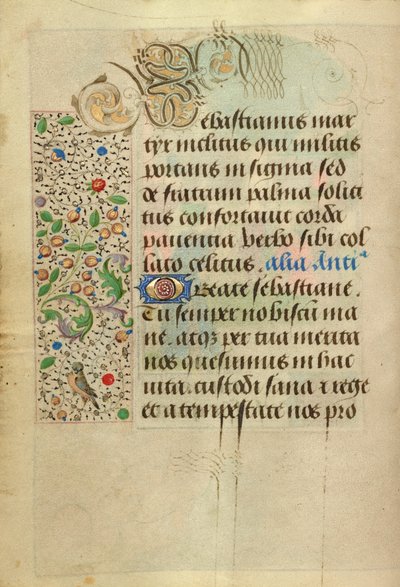 Sebastianus mar
tyr inclitus qui militis
portans insignia sed
de fratrum palma solici
tus confortauit corda
pauentia verbo sibi col
lato celitus. alia Antiᵃ
O beate sebastiane.
Tu semper nobiscū ma
ne. atqꝫ per tua merita
nos quesumus in hac
uita. custodi sana ⁊ rege
et a tempestate nos pro